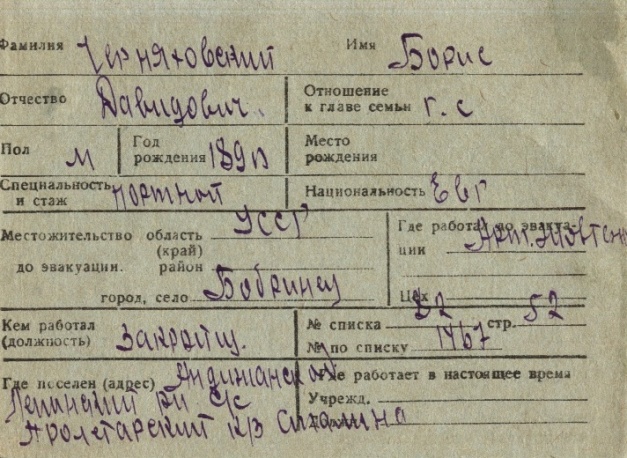 Фамилия Черняховский Имя Борис
Отчество Давидович. Отношение
к главе семьи г. с
Пол м Год
рождения Место
рождения
Специальность
и стаж портной Национальность Евр
Местожительство область УССР Где работал до эвакуа-
(край) ции Арт. Жовтень
до эвакуации. район
город, село Бобринец Цех
Кем работал
(должность) Закройщ. № списка 82 стр. 52
№ по списку 1467
Где поселен (адрес) Андижанской Где работает в настоящее время
Ленинский Учрежд.
Пролетарский к/з Сталина